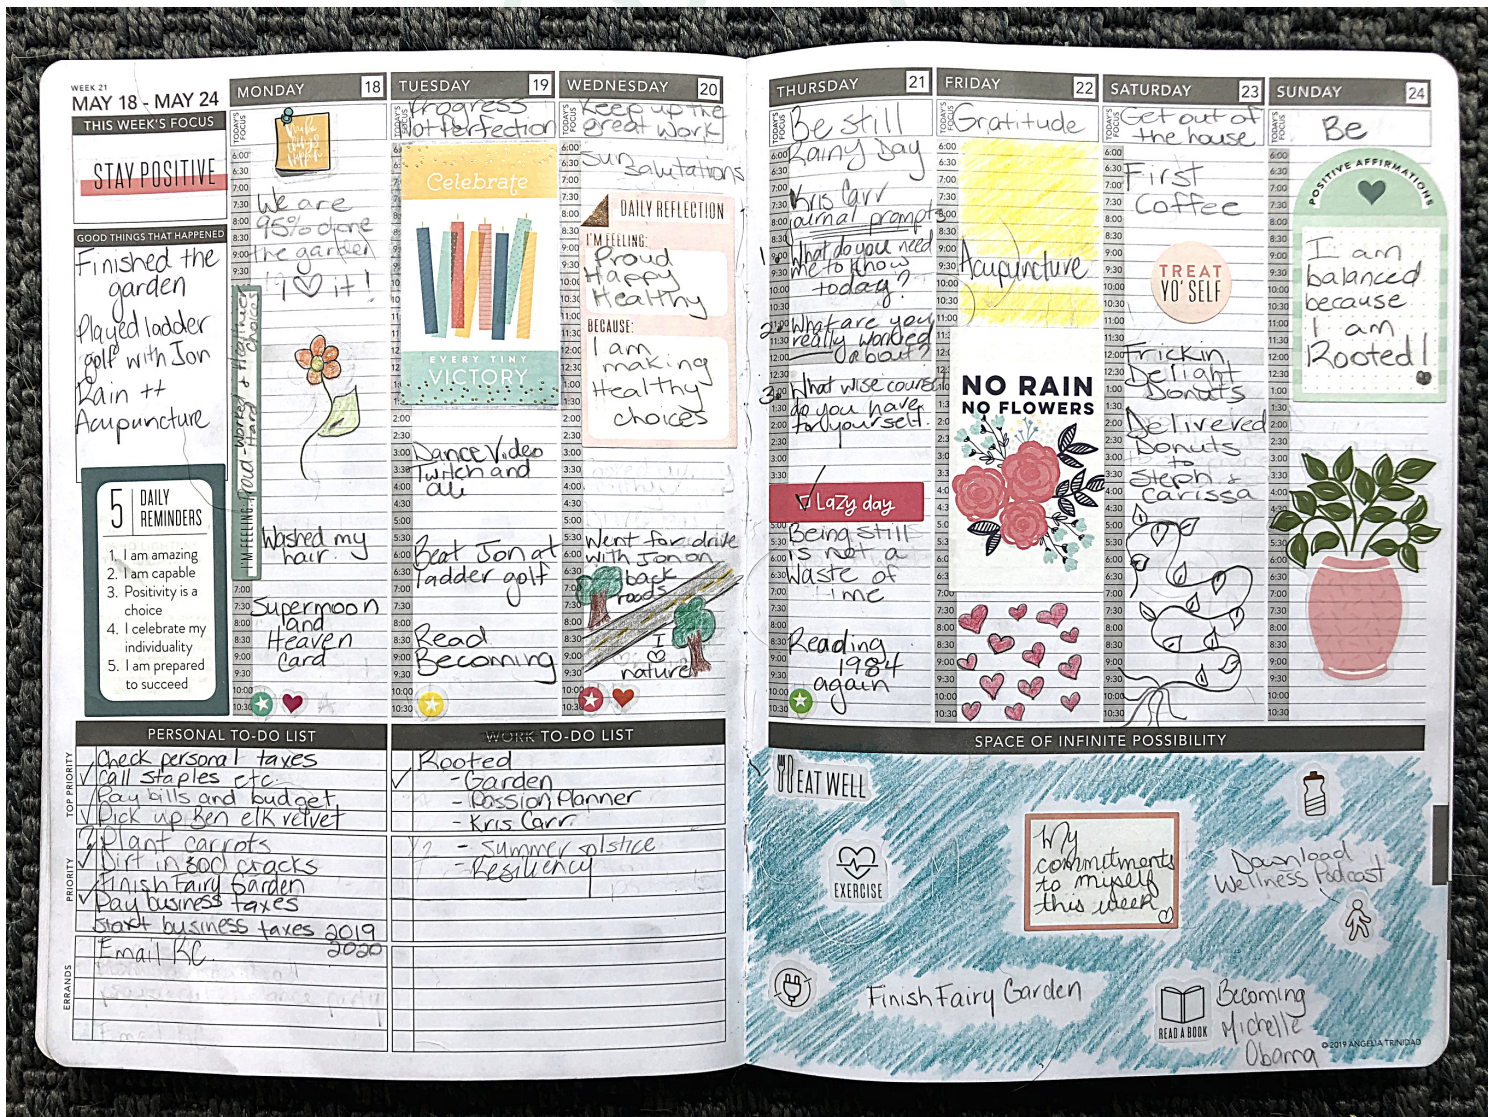 WEEK 21
MAY 18 - MAY 24
THIS WEEK'S FOCUS
STAY POSITIVE
GOOD THINGS THAT HAPPENED
Finished the
garden
Played ladder
golf with Jon
Rain ++
Acupuncture
5 DAILY
REMINDERS
1. I am amazing
2. I am capable
3. Positivity is a
choice
4. I celebrate my
individuality
5. I am prepared
to succeed
MONDAY 18
TODAY'S FOCUS
make
things
happen
We are
95% done
the garden
I ♡ it!
I'M FEELING: Proud - worked Hard + Healthier choices
Washed my
hair.
Supermoon
and
Heaven
Card
TUESDAY 19
TODAY'S FOCUS
Progress
Not Perfection
Celebrate
EVERY TINY
VICTORY
Dance Video
Twitch and
Ali
Beat Jon at
ladder golf
Read
Becoming
WEDNESDAY 20
TODAY'S FOCUS
Keep up the
great work
Sun
Salutations
DAILY REFLECTION
I'M FEELING:
Proud
Happy
Healthy
BECAUSE:
I am
making
Healthy
choices
Went for drive
with Jon on
back
roads
I
♡
nature
THURSDAY 21
TODAY'S FOCUS
Be still
Rainy Day
Kris Carr
journal prompts
1. What do you need
me to know
today?
2. What are you
really worried
about?
3. What wise counsel
do you have
for yourself.
Lazy day
Being still
is not a
waste of
time
Reading
1984
again
FRIDAY 22
TODAY'S FOCUS
Gratitude
Acupuncture
NO RAIN
NO FLOWERS
SATURDAY 23
TODAY'S FOCUS
Get out of
the house
First
Coffee
TREAT
YO' SELF
Frickin
Delight
Donuts
Delivered
Donuts
to
Steph +
Carissa
SUNDAY 24
TODAY'S FOCUS
Be
POSITIVE AFFIRMATIONS
I am
balanced
because
I am
Rooted!
PERSONAL TO-DO LIST
TOP PRIORITY
Check personal taxes
Call staples etc.
Pay bills and budget
Pick up Ben elk velvet
PRIORITY
Plant carrots
Dirt in cracks
Finish Fairy Garden
Pay business taxes
start business taxes 2019
2020
ERRANDS
Email KC.
WORK TO-DO LIST
Rooted
- Garden
- Passion Planner
- Kris Carr
- Summer solstice
- Resiliency
SPACE OF INFINITE POSSIBILITY
EAT WELL
EXERCISE
My
commitments
to myself
this week
Download
Wellness Podcast
Finish Fairy Garden
READ A BOOK
Becoming
Michelle
Obama
© 2019 ANGELIA TRINIDAD